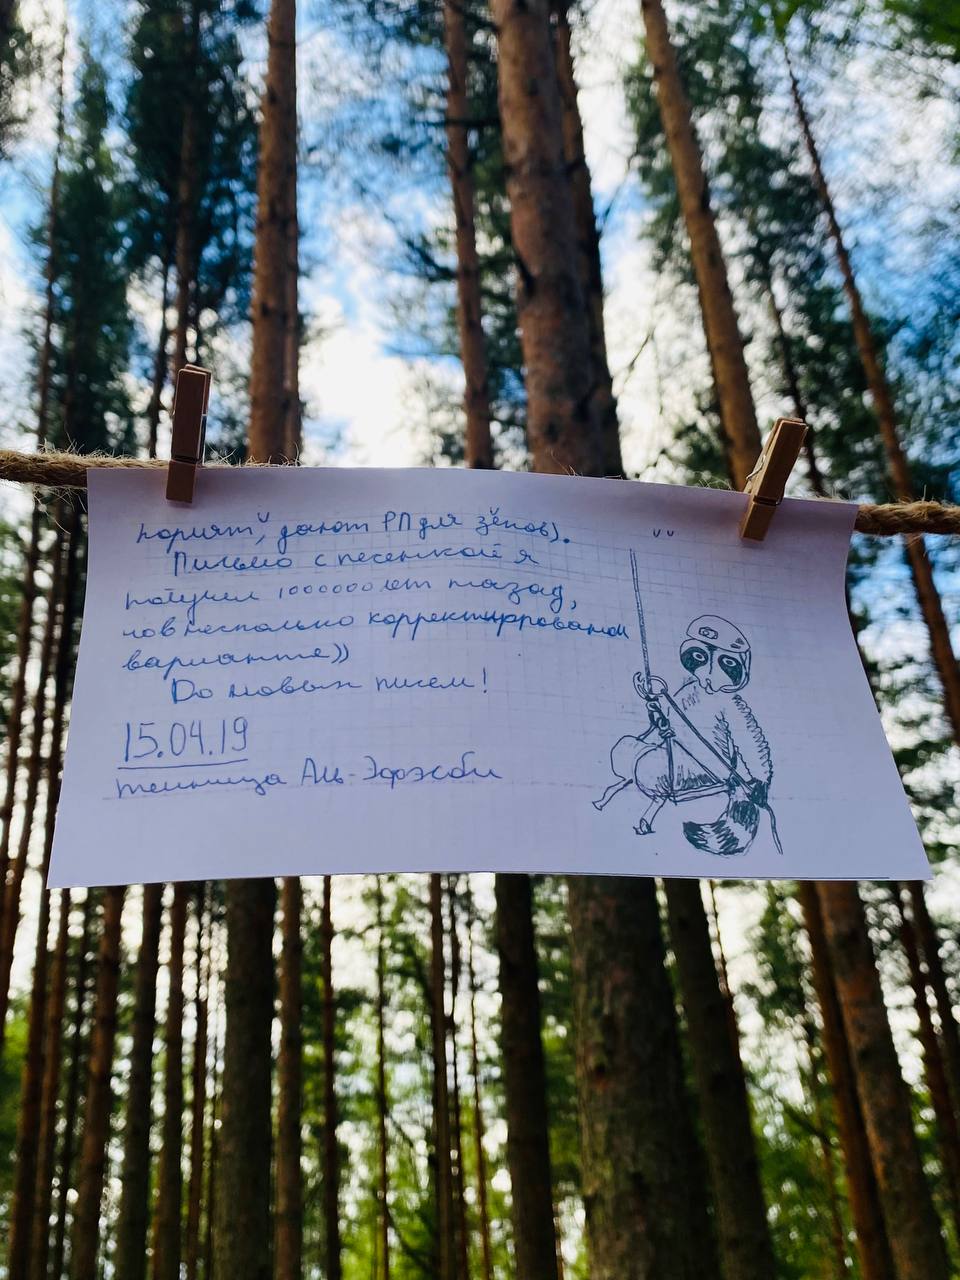 дают РП для зэков).
Письмо с песенкой я
получил 1000000 лет назад,
но в несколько корректированом
варианте))
До новых писем!
15.04.19
темница Аль-Эфэсби